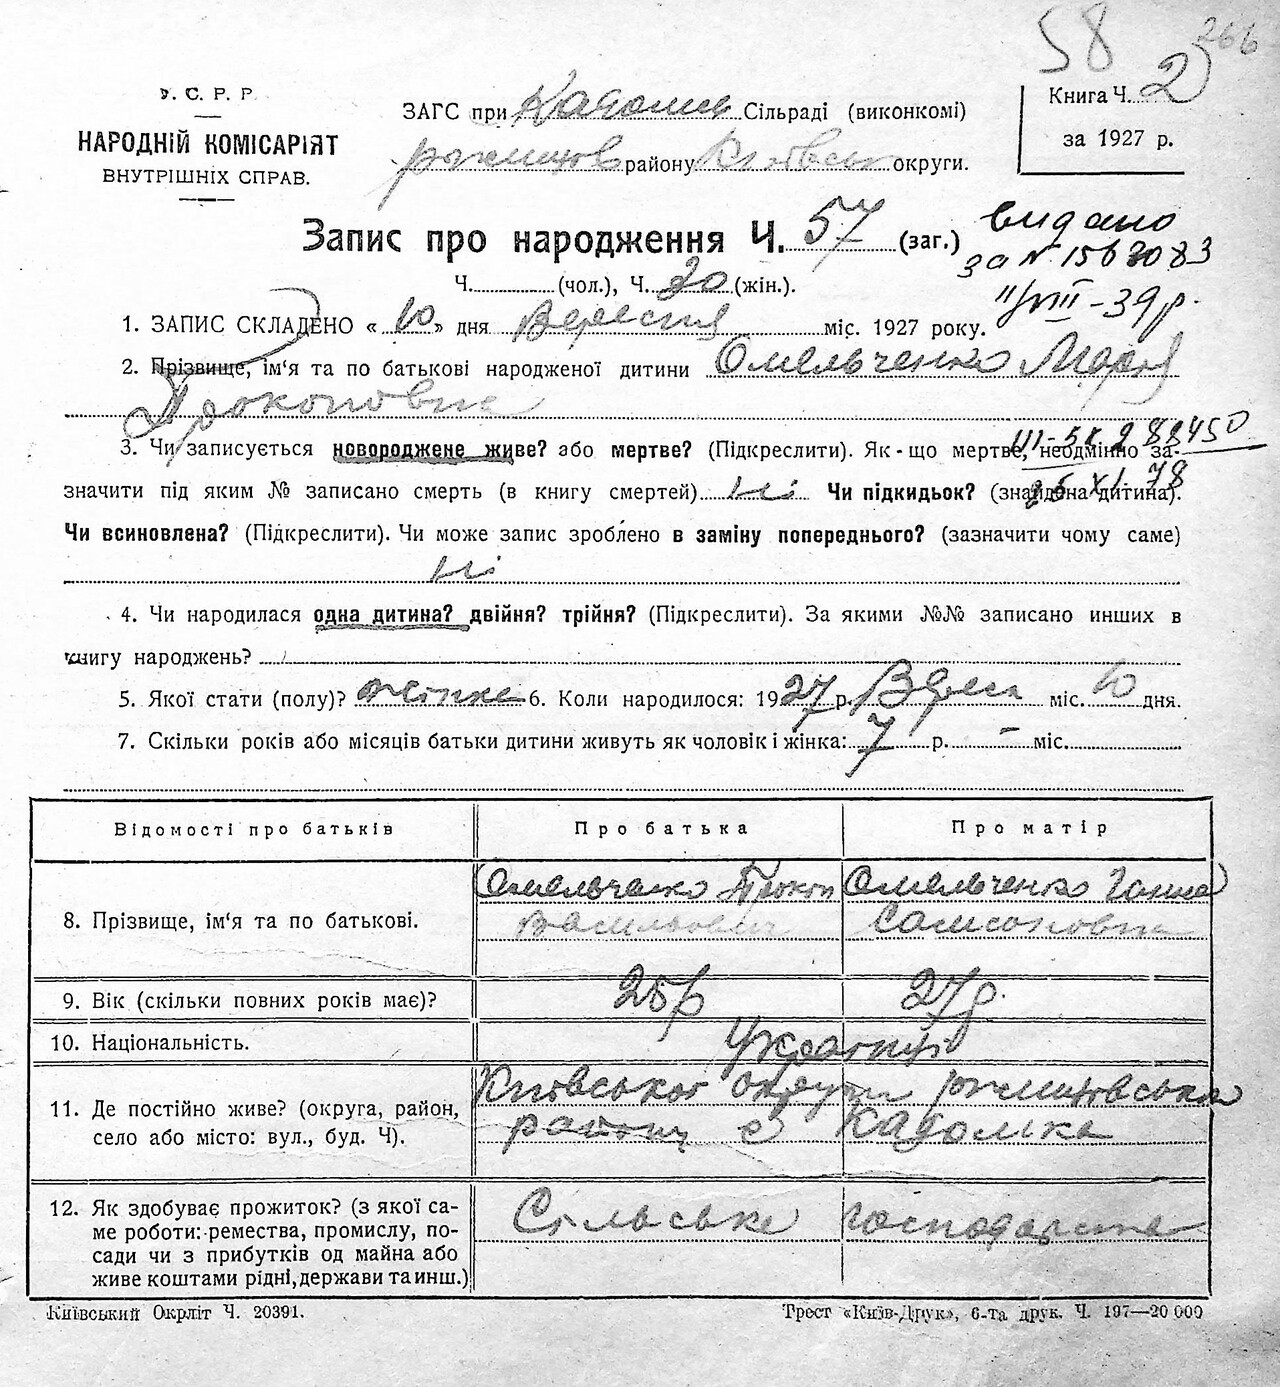 58 266
У. С. Р. Р.
НАРОДНІЙ КОМІСАРІЯТ
ВНУТРІШНІХ СПРАВ.
ЗАГС при Кадомк Сільраді (виконкомі)
району Київськ округи.
Книга Ч. 2
за 1927 р.
Запис про народження Ч. 57 (заг.)
Ч. (чол.), Ч. 30 (жін.).
видано
за №
II/VIII-39 р.
1. ЗАПИС СКЛАДЕНО «10» дня Вересня міс. 1927 року.
2. Прізвище, ім'я та по батькові народженої дитини Омельченко Марія
Прокоповна
3. Чи записується новороджене живе? або мертве? (Підкреслити). Як-що мертве, неодмінно за-
III-БК 288450
значити під яким № записано смерть (в книгу смертей) Ні Чи підкидьок? (знайдена дитина).
XI 78
Чи всиновлена? (Підкреслити). Чи може запис зроблено в заміну попереднього? (зазначити чому саме)
Ні
4. Чи народилася одна дитина? двійня? трійня? (Підкреслити). За якими №№ записано инших в
книгу народжень?
5. Якої стати (полу)? 6. Коли народилося: 1927 р. Верес міс. 10 дня.
7. Скільки років або місяців батьки дитини живуть як чоловік і жінка: 7 р. - міс.
Відомості про батьків Про батька Про матір
8. Прізвище, ім'я та по батькові. Омельченко Прокоп Омельченко Ганна
Васильович Самсоновна
9. Вік (скільки повних років має)? 25 р 27 р.
10. Національність. Українці
11. Де постійно живе? (округа, район,
село або місто: вул., буд. Ч).
Київської округи
району с Кадомка
12. Як здобуває прожиток? (з якої са-
ме роботи: ремества, промислу, по-
сади чи з прибутків од майна або
живе коштами рідні, держави та инш.)
Сільське господарство
Київський Окрліт Ч. 20391.
Трест «Київ-Друк», 6-та друк. Ч. 197—20 000